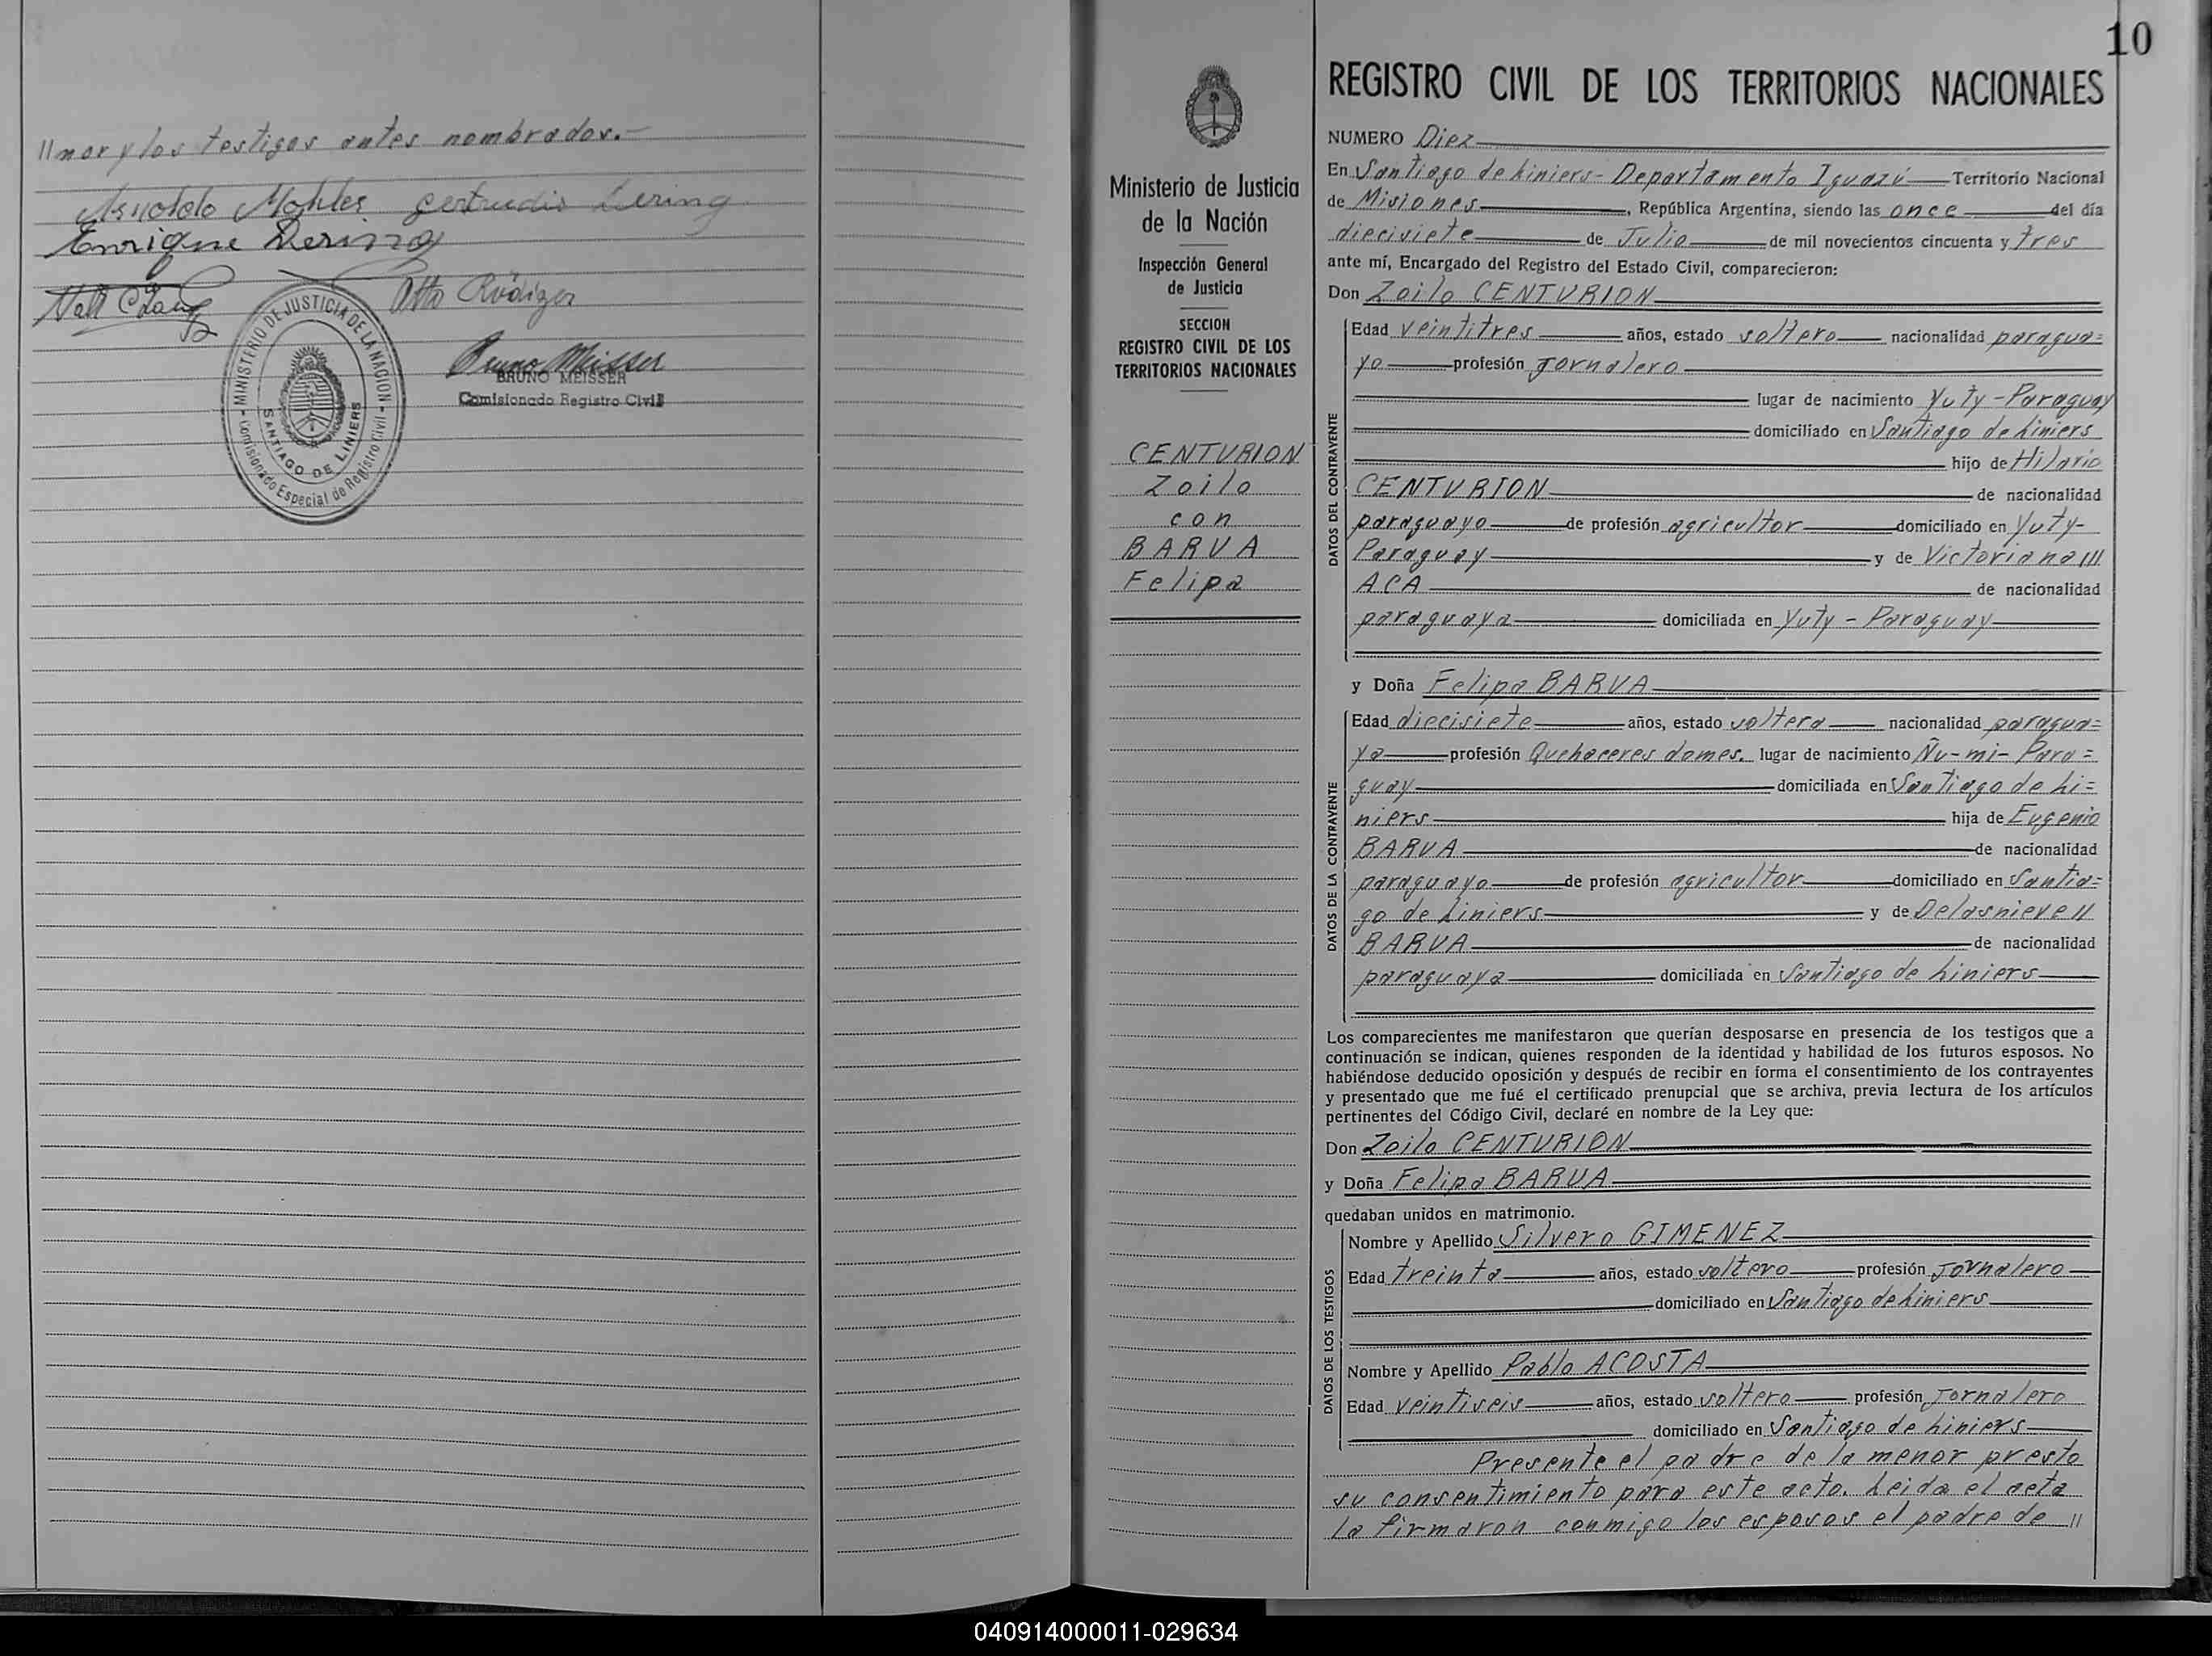 //nor y los testigos antes nombrados.-
Enrique Dering
Otto Rüdiger
Bruno Meisser
BRUNO MEISSER
Comisionado Registro Civil
MINISTERIO DE JUSTICIA DE LA NACION
Comisionado Especial de Registro Civil
SANTIAGO DE LINIERS
10
Ministerio de Justicia
de la Nación
Inspección General
de Justicia
SECCION
REGISTRO CIVIL DE LOS
TERRITORIOS NACIONALES
CENTURION
Zoilo
con
BARUA
Felipa
REGISTRO CIVIL DE LOS TERRITORIOS NACIONALES
NUMERO Diez
En Santiago de Liniers - Departamento Iguazú Territorio Nacional
de Misiones, República Argentina, siendo las once del día
diecisiete de Julio de mil novecientos cincuenta y tres
ante mí, Encargado del Registro del Estado Civil, comparecieron:
Don Zoilo CENTURION
DATOS DEL CONTRAYENTE
Edad veintitres años, estado soltero nacionalidad paragua=
yo profesión Jornalero
lugar de nacimiento Yuty - Paraguay
domiciliado en Santiago de Liniers
hijo de Hilario
CENTURION de nacionalidad
paraguayo de profesión agricultor domiciliado en Yuty-
Paraguay y de Victoriana ///
ACA de nacionalidad
paraguaya domiciliada en Yuty - Paraguay
y Doña Felipa BARUA
DATOS DE LA CONTRAYENTE
Edad diecisiete años, estado soltera nacionalidad paragua=
ya profesión Quehaceres domes. lugar de nacimiento Ñu-mi- Para=
guay domiciliada en Santiago de Li=
niers hija de Eugenio
BARUA de nacionalidad
paraguayo de profesión agricultor domiciliado en Santia=
go de Liniers y de Delasnieve //
BARUA de nacionalidad
paraguaya domiciliada en Santiago de Liniers
Los comparecientes me manifestaron que querían desposarse en presencia de los testigos que a
continuación se indican, quienes responden de la identidad y habilidad de los futuros esposos. No
habiéndose deducido oposición y después de recibir en forma el consentimiento de los contrayentes
y presentado que me fué el certificado prenupcial que se archiva, previa lectura de los artículos
pertinentes del Código Civil, declaré en nombre de la Ley que:
Don Zoilo CENTURION
y Doña Felipa BARUA
quedaban unidos en matrimonio.
DATOS DE LOS TESTIGOS
Nombre y Apellido Silvero GIMENEZ
Edad treinta años, estado soltero profesión Jornalero
domiciliado en Santiago de Liniers
Nombre y Apellido Pablo ACOSTA
Edad veintiseis años, estado soltero profesión Jornalero
domiciliado en Santiago de Liniers
Presente el padre de la menor presto
su consentimiento para este acto. Leida el acta
la firmaron conmigo los esposos el padre de //
040914000011-029634